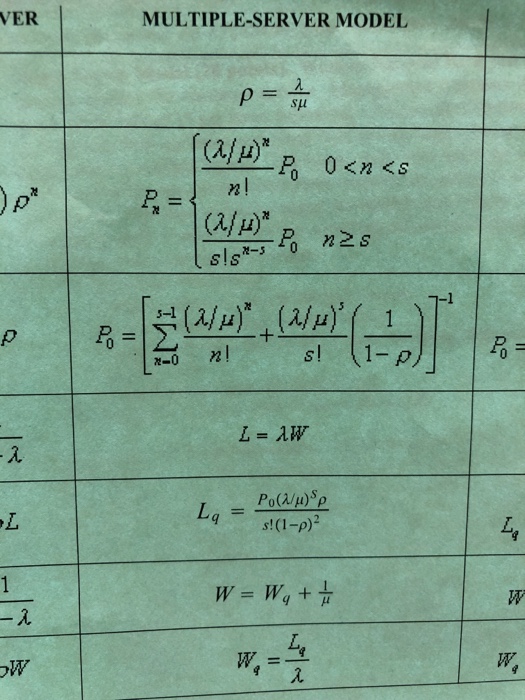 VER MULTIPLE-SERVER MODEL
ρ = λ/(sμ)
) ρⁿ Pₙ = { (λ/μ)ⁿ/n! P₀ 0 < n < s
(λ/μ)ⁿ/(s!sⁿ⁻ˢ) P₀ n ≥ s
ρ P₀ = [ ∑ₙ₌₀ˢ⁻¹ (λ/μ)ⁿ/n! + (λ/μ)ˢ/s! (1/(1−ρ)) ]⁻¹ P₀ =
- λ L = λW
L L_q = P₀(λ/μ)ˢρ/(s!(1−ρ)²) L_q
1/(− λ) W = W_q + 1/μ W
ρW W_q = L_q/λ W_q